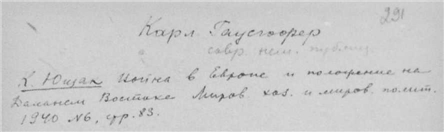 291
Карл Гаусгофер
совр. нем. публиц.
Война в Европе и положение на
Дальнем Востоке Миров. хоз. и миров. полит.
1940 №6, стр. 83.